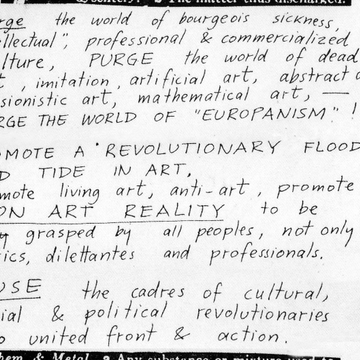 rge the world of bourgeois sickness,
ellectual", professional & commercialized
lture, PURGE the world of dead
t, imitation, artificial art, abstract a
sionistic art, mathematical art, —
RGE THE WORLD OF "EUROPANISM"!
OMOTE A REVOLUTIONARY FLOOD
D TIDE IN ART,
mote living art, anti-art, promote
ON ART REALITY to be
grasped by all peoples, not only
ics, dilettantes and professionals.
USE the cadres of cultural,
ial & political revolutionaries
o united front & action.
hem. & Metal. Any substance or mixture used to